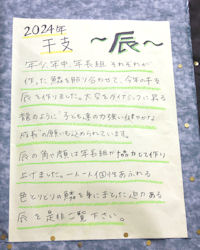 2024年
干支 〜辰〜
年少、年中、年長組 それぞれが
作った鱗を貼り合わせて、今年の干支
辰を作りました。大空をダイナミックに昇る
龍のように「子ども達の力強い健やかな
成長」の願いも込められています。
辰の角や顔は年長組が協力して作り
上げました。一人一人個性あふれる
色とりどりの鱗を身にまとった迫力ある
辰を是非ご覧下さい。